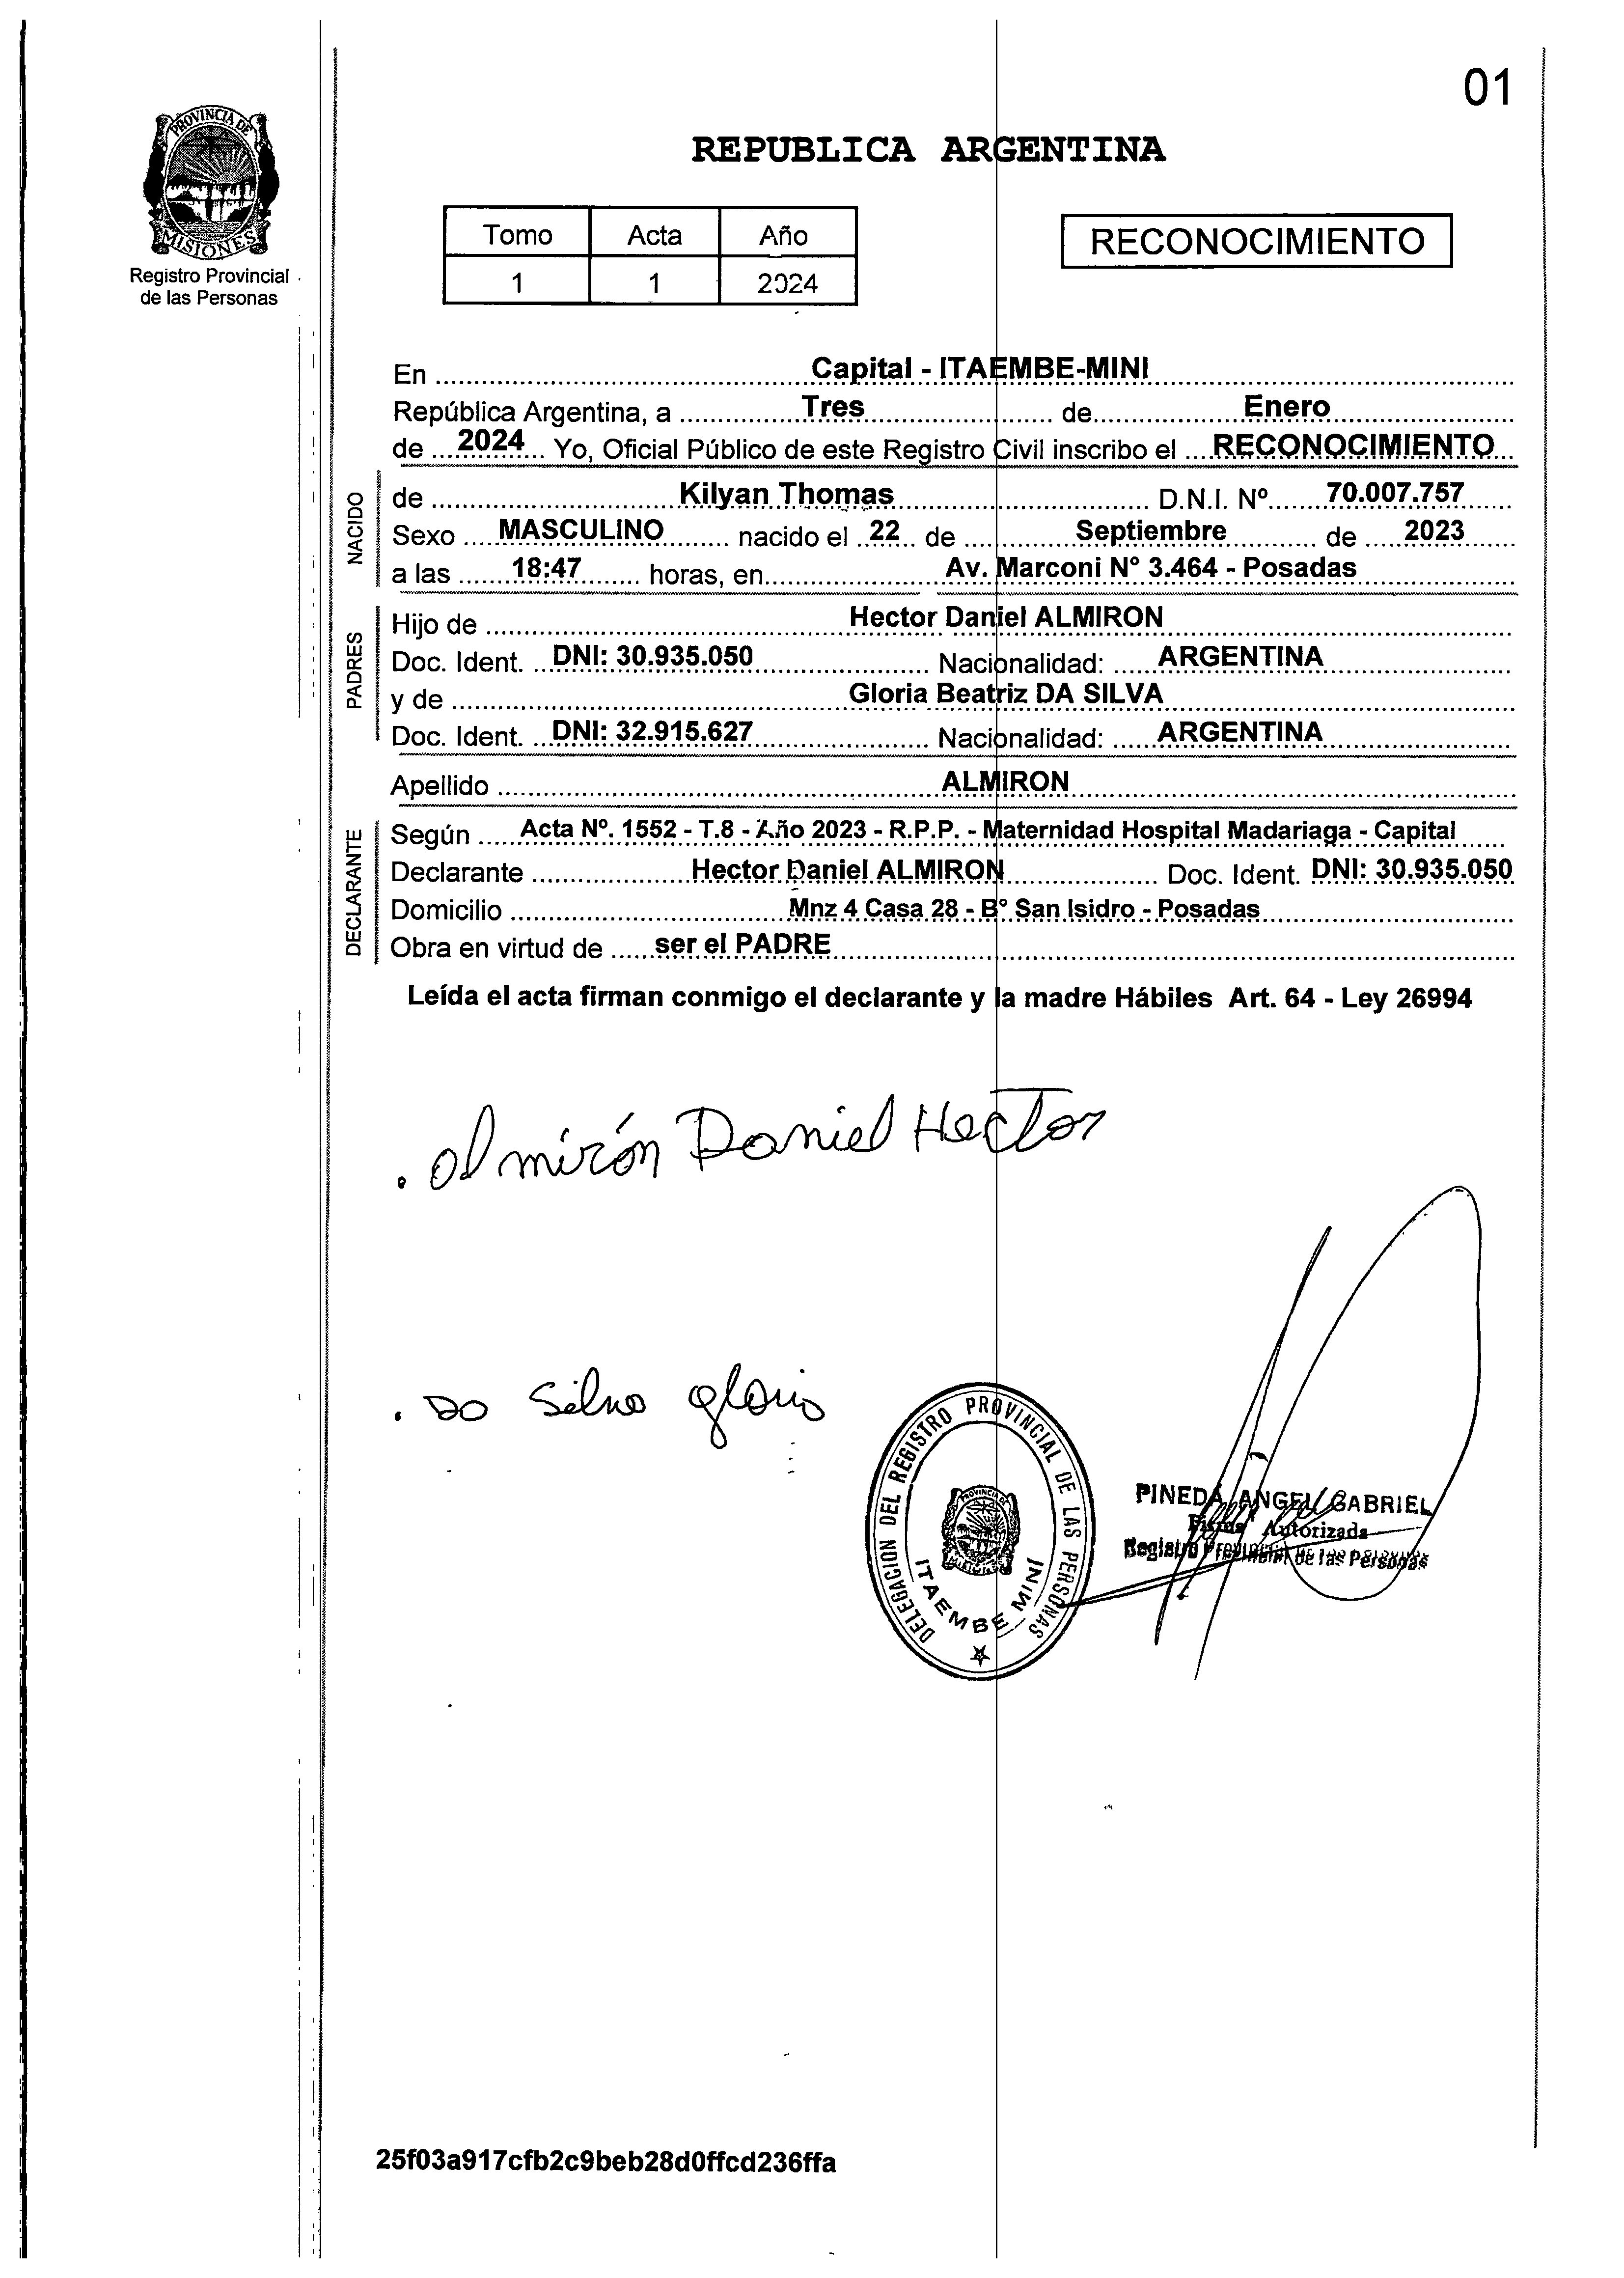 01
PROVINCIA DE
MISIONES
Registro Provincial
de las Personas
REPUBLICA ARGENTINA
Tomo Acta Año
1 1 2024
RECONOCIMIENTO
En Capital - ITAEMBE-MINI
República Argentina, a Tres de Enero
de 2024 Yo, Oficial Público de este Registro Civil inscribo el RECONOCIMIENTO
NACIDO
de Kilyan Thomas D.N.I. Nº 70.007.757
Sexo MASCULINO nacido el 22 de Septiembre de 2023
a las 18:47 horas, en Av. Marconi N° 3.464 - Posadas
PADRES
Hijo de Hector Daniel ALMIRON
Doc. Ident. DNI: 30.935.050 Nacionalidad: ARGENTINA
y de Gloria Beatriz DA SILVA
Doc. Ident. DNI: 32.915.627 Nacionalidad: ARGENTINA
Apellido ALMIRON
DECLARANTE
Según Acta Nº. 1552 - T.8 - Año 2023 - R.P.P. - Maternidad Hospital Madariaga - Capital
Declarante Hector Daniel ALMIRON Doc. Ident. DNI: 30.935.050
Domicilio Mnz 4 Casa 28 - B° San Isidro - Posadas
Obra en virtud de ser el PADRE
Leída el acta firman conmigo el declarante y la madre Hábiles Art. 64 - Ley 26994
. Almirón Daniel Hector
. Da Silva gloria
DELEGACION DEL REGISTRO PROVINCIAL DE LAS PERSONAS
PROVINCIA DE
ITAEMBE MINI
PINEDA ANGEL GABRIEL
Firma Autorizada
Registro Provincial de las Personas
25f03a917cfb2c9beb28d0ffcd236ffa